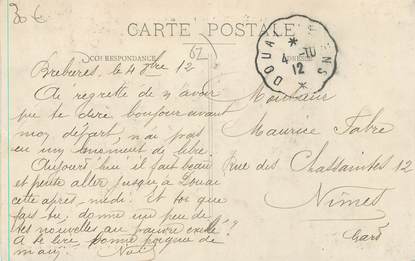 30 €
62
CARTE POSTALE
CORRESPONDANCE
ADRESSE
DOUAI
4-10
12
Brebières, le 4 8bre 12
Ai regretté de n'avoir
pu te dire bonjour avant
mon départ, n'ai pas
eu un moment de libre.
Aujourd'hui il fait beau
et peut-être aller jusqu'à Douai
cette après-midi. Et toi que
fais-tu, donne un peu de
tes nouvelles au pauvre exilé ?
A te lire, bonne poignée de
main
Monsieur
Maurice Fabre
Rue des Chassaintes 12
Nîmes
Gard